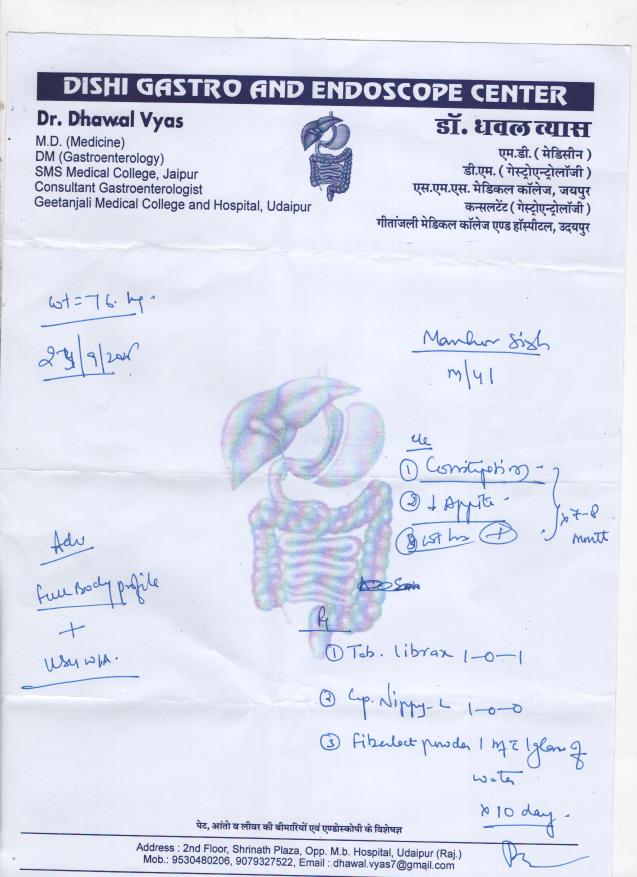 DISHI GASTRO AND ENDOSCOPE CENTER
Dr. Dhawal Vyas
M.D. (Medicine)
DM (Gastroenterology)
SMS Medical College, Jaipur
Consultant Gastroenterologist
Geetanjali Medical College and Hospital, Udaipur
डॉ. धवल व्यास
एम.डी. ( मेडिसीन )
डी.एम. ( गेस्ट्रोएन्ट्रोलॉजी )
एस.एम.एस. मेडिकल कॉलेज, जयपुर
कन्सलटेंट ( गेस्ट्रोएन्ट्रोलॉजी )
गीतांजली मेडिकल कॉलेज एण्ड हॉस्पीटल, उदयपुर
wt = 76 kg
M/41
① Constipation
② ↓
③ wt loss +
x 7-8
month
Adv
Full Body profile
+
USG W/A.
① Tab. Librax 1-0-1
② Cap. Nippy-L 1-0-0
③ powder 1 glass of
water
x 10 day.
पेट, आंतो व लीवर की बीमारियों एवं एण्डोस्कोपी के विशेषज्ञ
Address : 2nd Floor, Shrinath Plaza, Opp. M.b. Hospital, Udaipur (Raj.)
Mob.: 9530480206, 9079327522, Email : dhawal.vyas7@gmail.com